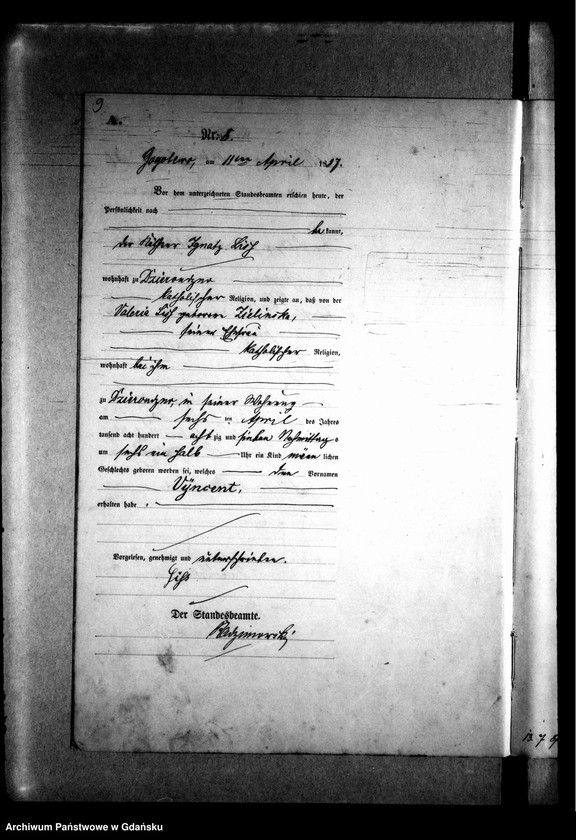 9
A.
Nr. 8.
Gogolewo, am 11ten April 1887.
Vor dem unterzeichneten Standesbeamten erschien heute, der
Persönlichkeit nach
bekannt,
der Käthner Ignatz
wohnhaft zu
katholischer Religion, und zeigte an, daß von der
Valeria geborene Zielinska,
seiner Ehefrau
katholischer Religion,
wohnhaft bei ihm
zu in seiner Wohnung
am sechs ten April des Jahres
tausend acht hundert acht zig und sieben Nachmittags
um sechs ein halb Uhr ein Kind männ lichen
Geschlechts geboren worden sei, welches den Vornamen
Vyncent,
erhalten habe.
Vorgelesen, genehmigt und unterschrieben.
Der Standesbeamte.
13 7
Archiwum Państwowe w Gdańsku